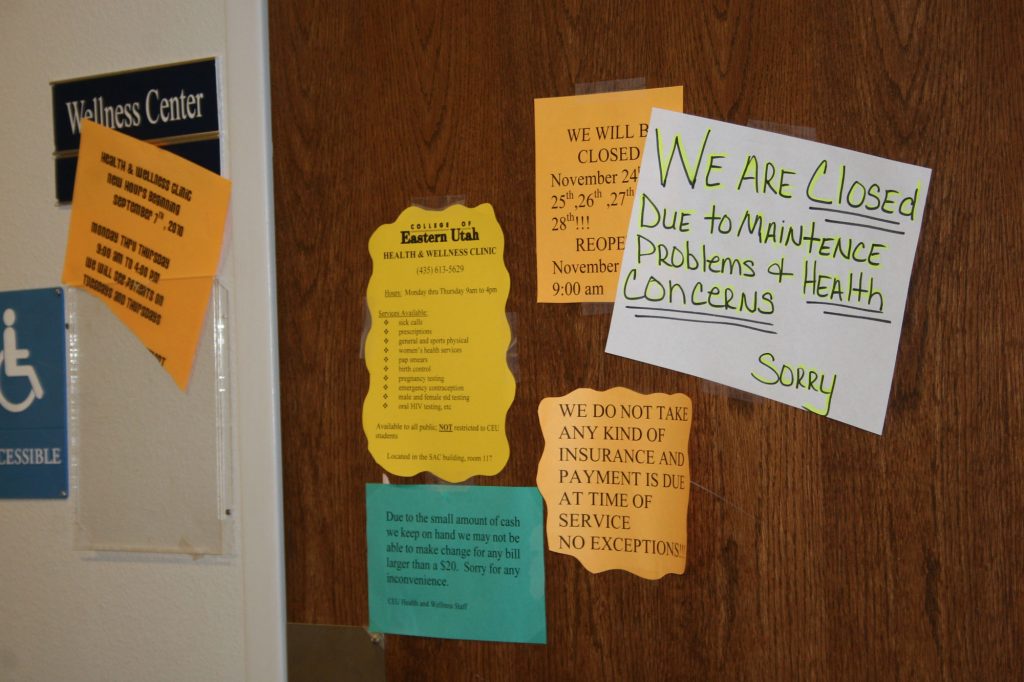 Wellness Center
Health & Wellness Clinic
New Hours Beginning
September 7th, 2010
Monday thru Thursday
9:00 am to 4:00 pm
We will see patients on
Tuesdays and Thursdays
CESSIBLE
COLLEGE OF
Eastern Utah
HEALTH & WELLNESS CLINIC
(435) 613-5629
Hours: Monday thru Thursday 9am to 4pm
Services Available:
❖ sick calls
❖ prescriptions
❖ general and sports physical
❖ women's health services
❖ pap smears
❖ birth control
❖ pregnancy testing
❖ emergency contraception
❖ male and female std testing
❖ oral HIV testing, etc
Available to all public, NOT restricted to CEU
students
Located in the SAC building, room 117
Due to the small amount of cash
we keep on hand we may not be
able to make change for any bill
larger than a $20. Sorry for any
inconvenience.
CEU Health and Wellness Staff
WE WILL B
CLOSED
November 24
25th,26th ,27th
28th!!!
REOPE
November
9:00 am
WE ARE CLOSED
DUE to MAINTENCE
PROBLEMS & HEALTH
CONCERNS
SORRY
WE DO NOT TAKE
ANY KIND OF
INSURANCE AND
PAYMENT IS DUE
AT TIME OF
SERVICE
NO EXCEPTIONS!!!